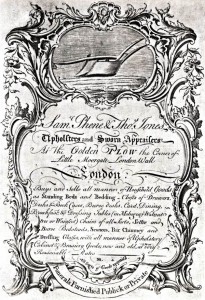 Sam. Phene & Thos. Jones
Upholsters and Sworn Appraisers
At the Golden PLOW the Corner of
Little Moorgate, London Wall
London:
Buys and Sells all manner of Houshold Goods
as Standing Beds and Bedding, Chests of Drawers,
Desks & Book Cases, Buroe Desks, Card, Dining,
Breakfast & Dressing Tables (in Mahogy. Walnuts
or Wainsct.) Chairs of all Sorts, Settee and
Buroe Bedsteads, Sconces, Pier Chimney and
Dressing Glasses, with all manner of Upholstery
Cabinet & Braziery Goods, new and old, at very
Reasonable Rates
Funerals Furnished Publick or Private